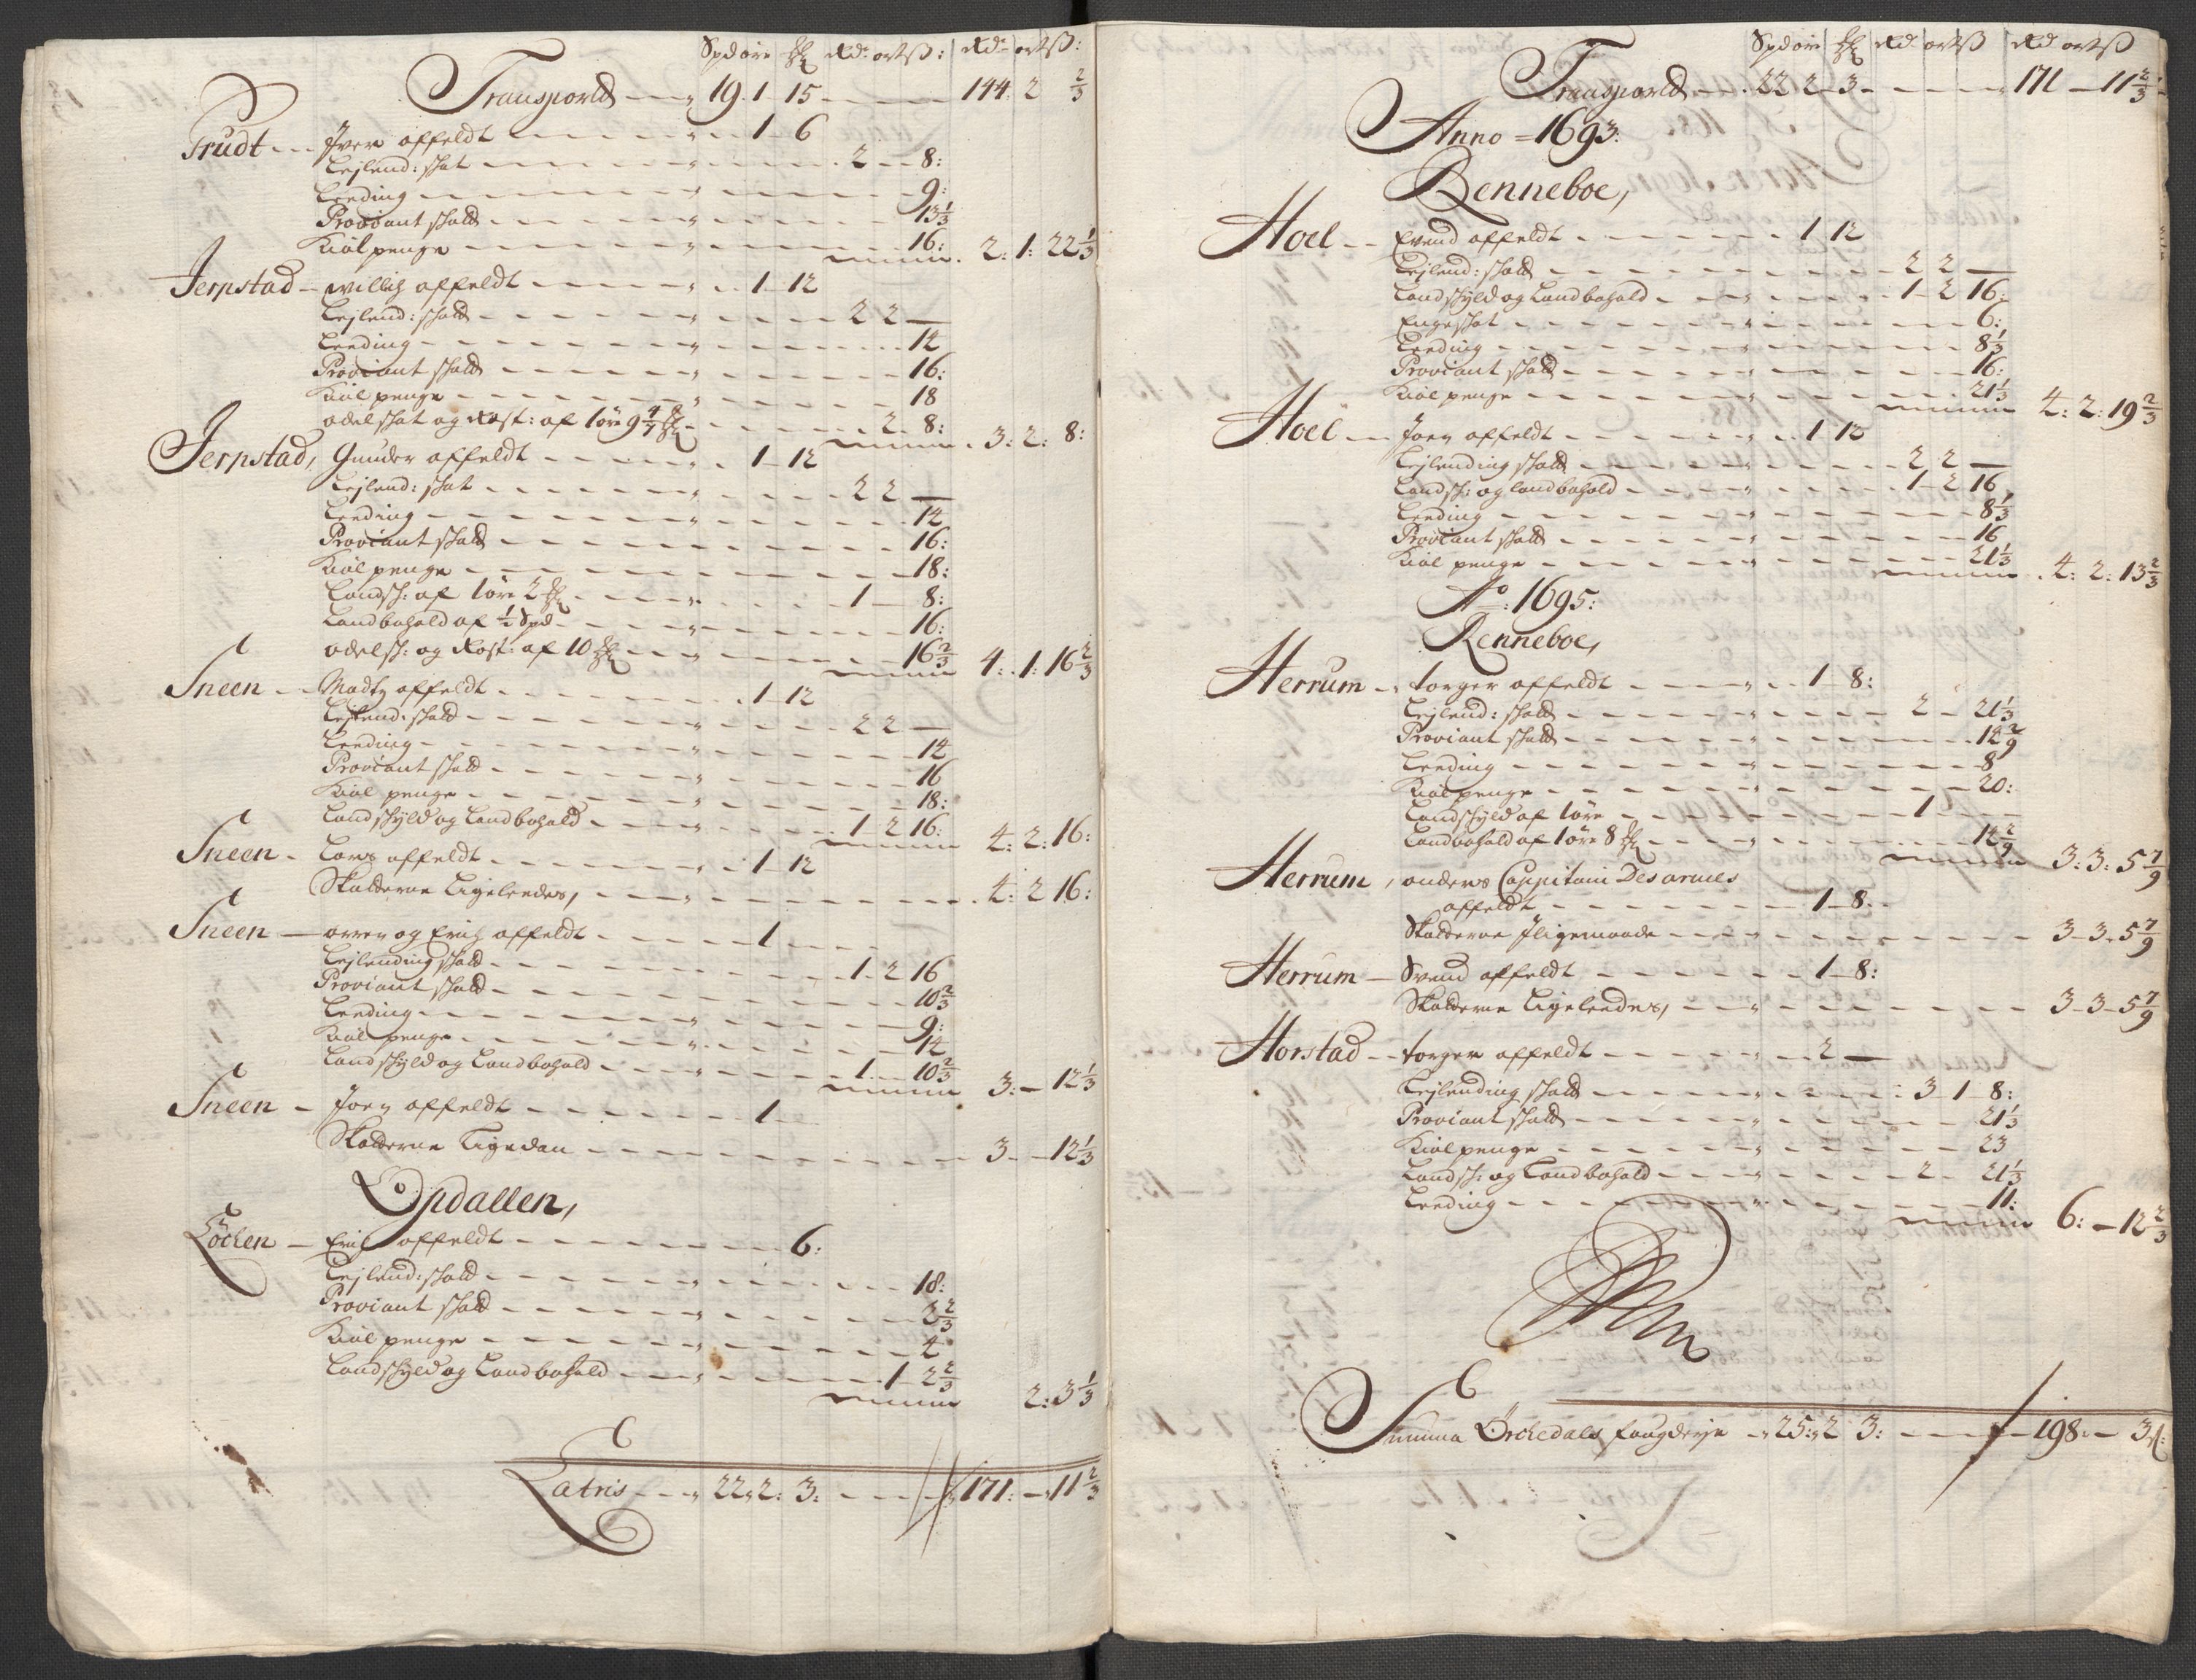 Spd øre ℔ Rdr ort ß: Rdr ort ß:
Transporld 19. 1 15 144. 2 2/3
Trudt Iver affeldt 1 6
Lejlend: skat 2 8:
Leeding 9:
Proviant skatt 13 1/3
Kiøl penge 16: 2: 1: 22 1/3
Jerpstad willig affeldt 1 12
Lejlend: skatt 2 2
Leeding 12
Proviant skatt 16:
Kiøl penge 18
odelskat og Rost: af 1 øre 9 4/7 ℔ 2 8: 3: 2: 8:
Jerpstad, Gunder affeldt 1 12
Lejlend: skat 2 2
Leeding 12
Proviant skatt 16:
Kiøl penge 18:
Landsk: af 1 øre 2 ℔ 1 8:
Landbohold af 1/2 Spd 16:
odelsk: og Rost: af 10 ℔ 16 2/3 4: 1: 16 2/3
Sneen Madtz affeldt 1 12
Lejlend: skatt 2 2
Leeding 12
Proviant skatt 16
Kiøl penge 18:
Landskyld og Landbohold 1 2 16: 4: 2: 16:
Sneen Lars affeldt 1 12
Skatterne Ligeleedes, 4: 2 16:
Sneen arren og Erich affeldt 1
Lejlending skatt 1 2 16
Proviant skatt 10 2/3
Leeding 9:
Kiøl penge 12
Landskyld og Landbohold 1 10 2/3 3: 12 1/3
Sneen Joen affeldt 1
Skatterne Ligedan 3 12 1/3
Opdallen,
Løchen Erich affeldt 6:
Lejlend: skatt 18:
Proviant skatt 2 2/3
Kiøl penge 4
Landskyld og Landbohold 1 2 2/3 2: 3 1/3
Latris 22. 2: 3: 171: 11 2/3
Spd øre ℔ Rd ort ß Rd ort ß
Transporld 22 2 3 171 11 2/3
Anno 1693:
Renneboe,
Hoel Evend affeldt 1 12
Lejlend: skatt 2 2
Landskyld og Landbohold 1 2 16:
Engeskat 6:
Leeding 8 1/3
Proviant skatt 16:
Kiøl penge 21 1/3 4: 2: 19 2/3
Hoel Joen affeldt 1 12
Lejlending skatt 2 2
Landsk: og landbohold 1 2 16
Leeding 8 1/3
Proviant skatt 16
Kiøl penge 21 1/3 4: 2: 13 2/3
Ao: 1695:
Renneboe,
Herrum torger affeldt 1 8:
Lejlend: skatt 2 21 1/3
Proviant skatt 14 2/9
Leeding 8
Kiøl penge 20:
Landskyld af 1 øre 1
Landbohold af 1 øre 8 ℔ 14 2/9 3: 3: 5 7/9
Herrum, anders Cappitain Des armes
affeldt 1 8
Skatterne Iligemaade 3 3 5 7/9
Herrum Svend affeldt 1 8:
Skatterne Ligeleedes, 3 3 5 7/9
Horstad torger affeldt 2
Lejlending skatt 3 1 8:
Proviant skatt 21 1/3
Kiøl penge 23
Landsk: og Landbohold 2 21 1/3
Leeding 11: 6: 12 2/3
Summa Orchedals fougderje 25: 2 3: 198 3 ß: